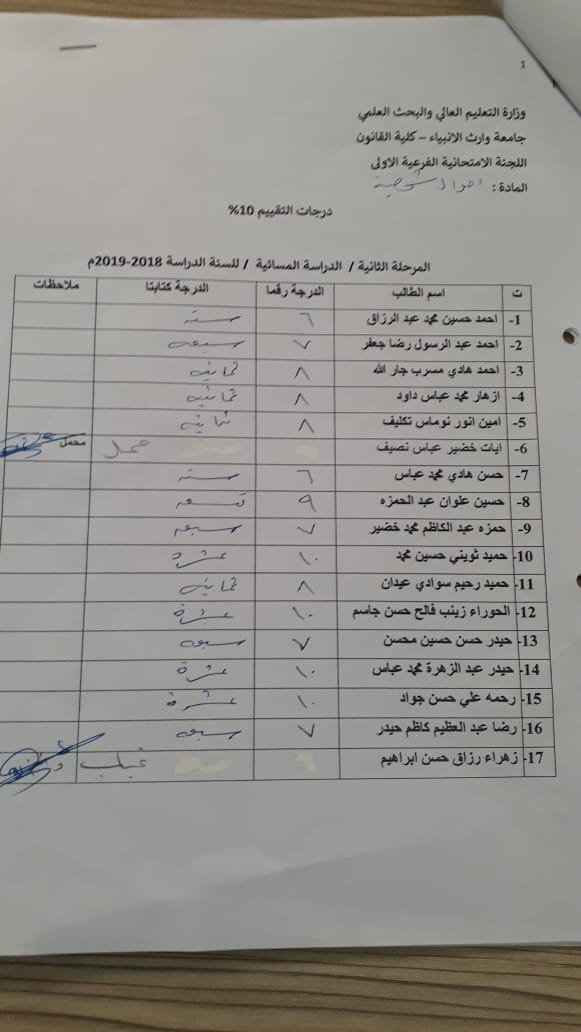 1
وزارة التعليم العالي والبحث العلمي
جامعة وارث الانبياء – كلية القانون
اللجنة الامتحانية الفرعية الاولى
المادة : احوال شخصية
درجات التقييم 10%
المرحلة الثانية / الدراسة المسائية / للسنة الدراسة 2018-2019م
ت اسم الطالب الدرجة رقما الدرجة كتابتا ملاحظات
1- احمد حسين محمد عبد الرزاق ٦ ستة
2- احمد عبد الرسول رضا جعفر ٧ سبعه
3- احمد هادي مسرب جار الله ٨ ثمانيه
4- ازهار محمد عباس داود ٨ ثمانيه
5- امين انور نوماس تكليف ٨ ثمانيه
6- ايات خضير عباس نصيف محمل
7- حسن هادي محمد عباس ٦ ستة
8- حسين علوان عبد الحمزه ٩ تسعه
9- حمزه عبد الكاظم محمد خضير ٧ سبعه
10- حميد ثويني حسين محمد ١٠ عشرة
11- حميد رحيم سوادي عيدان ٨ ثمانيه
12- الحوراء زينب فالح حسن جاسم ١٠ عشرة
13- حيدر حسن حسين محسن ٧ سبعه
14- حيدر عبد الزهرة محمد عباس ١٠ عشرة
15- رحمه علي حسن جواد ١٠ عشرة
16- رضا عبد العظيم كاظم حيدر ٧ سبعه
17- زهراء رزاق حسن ابراهيم غياب